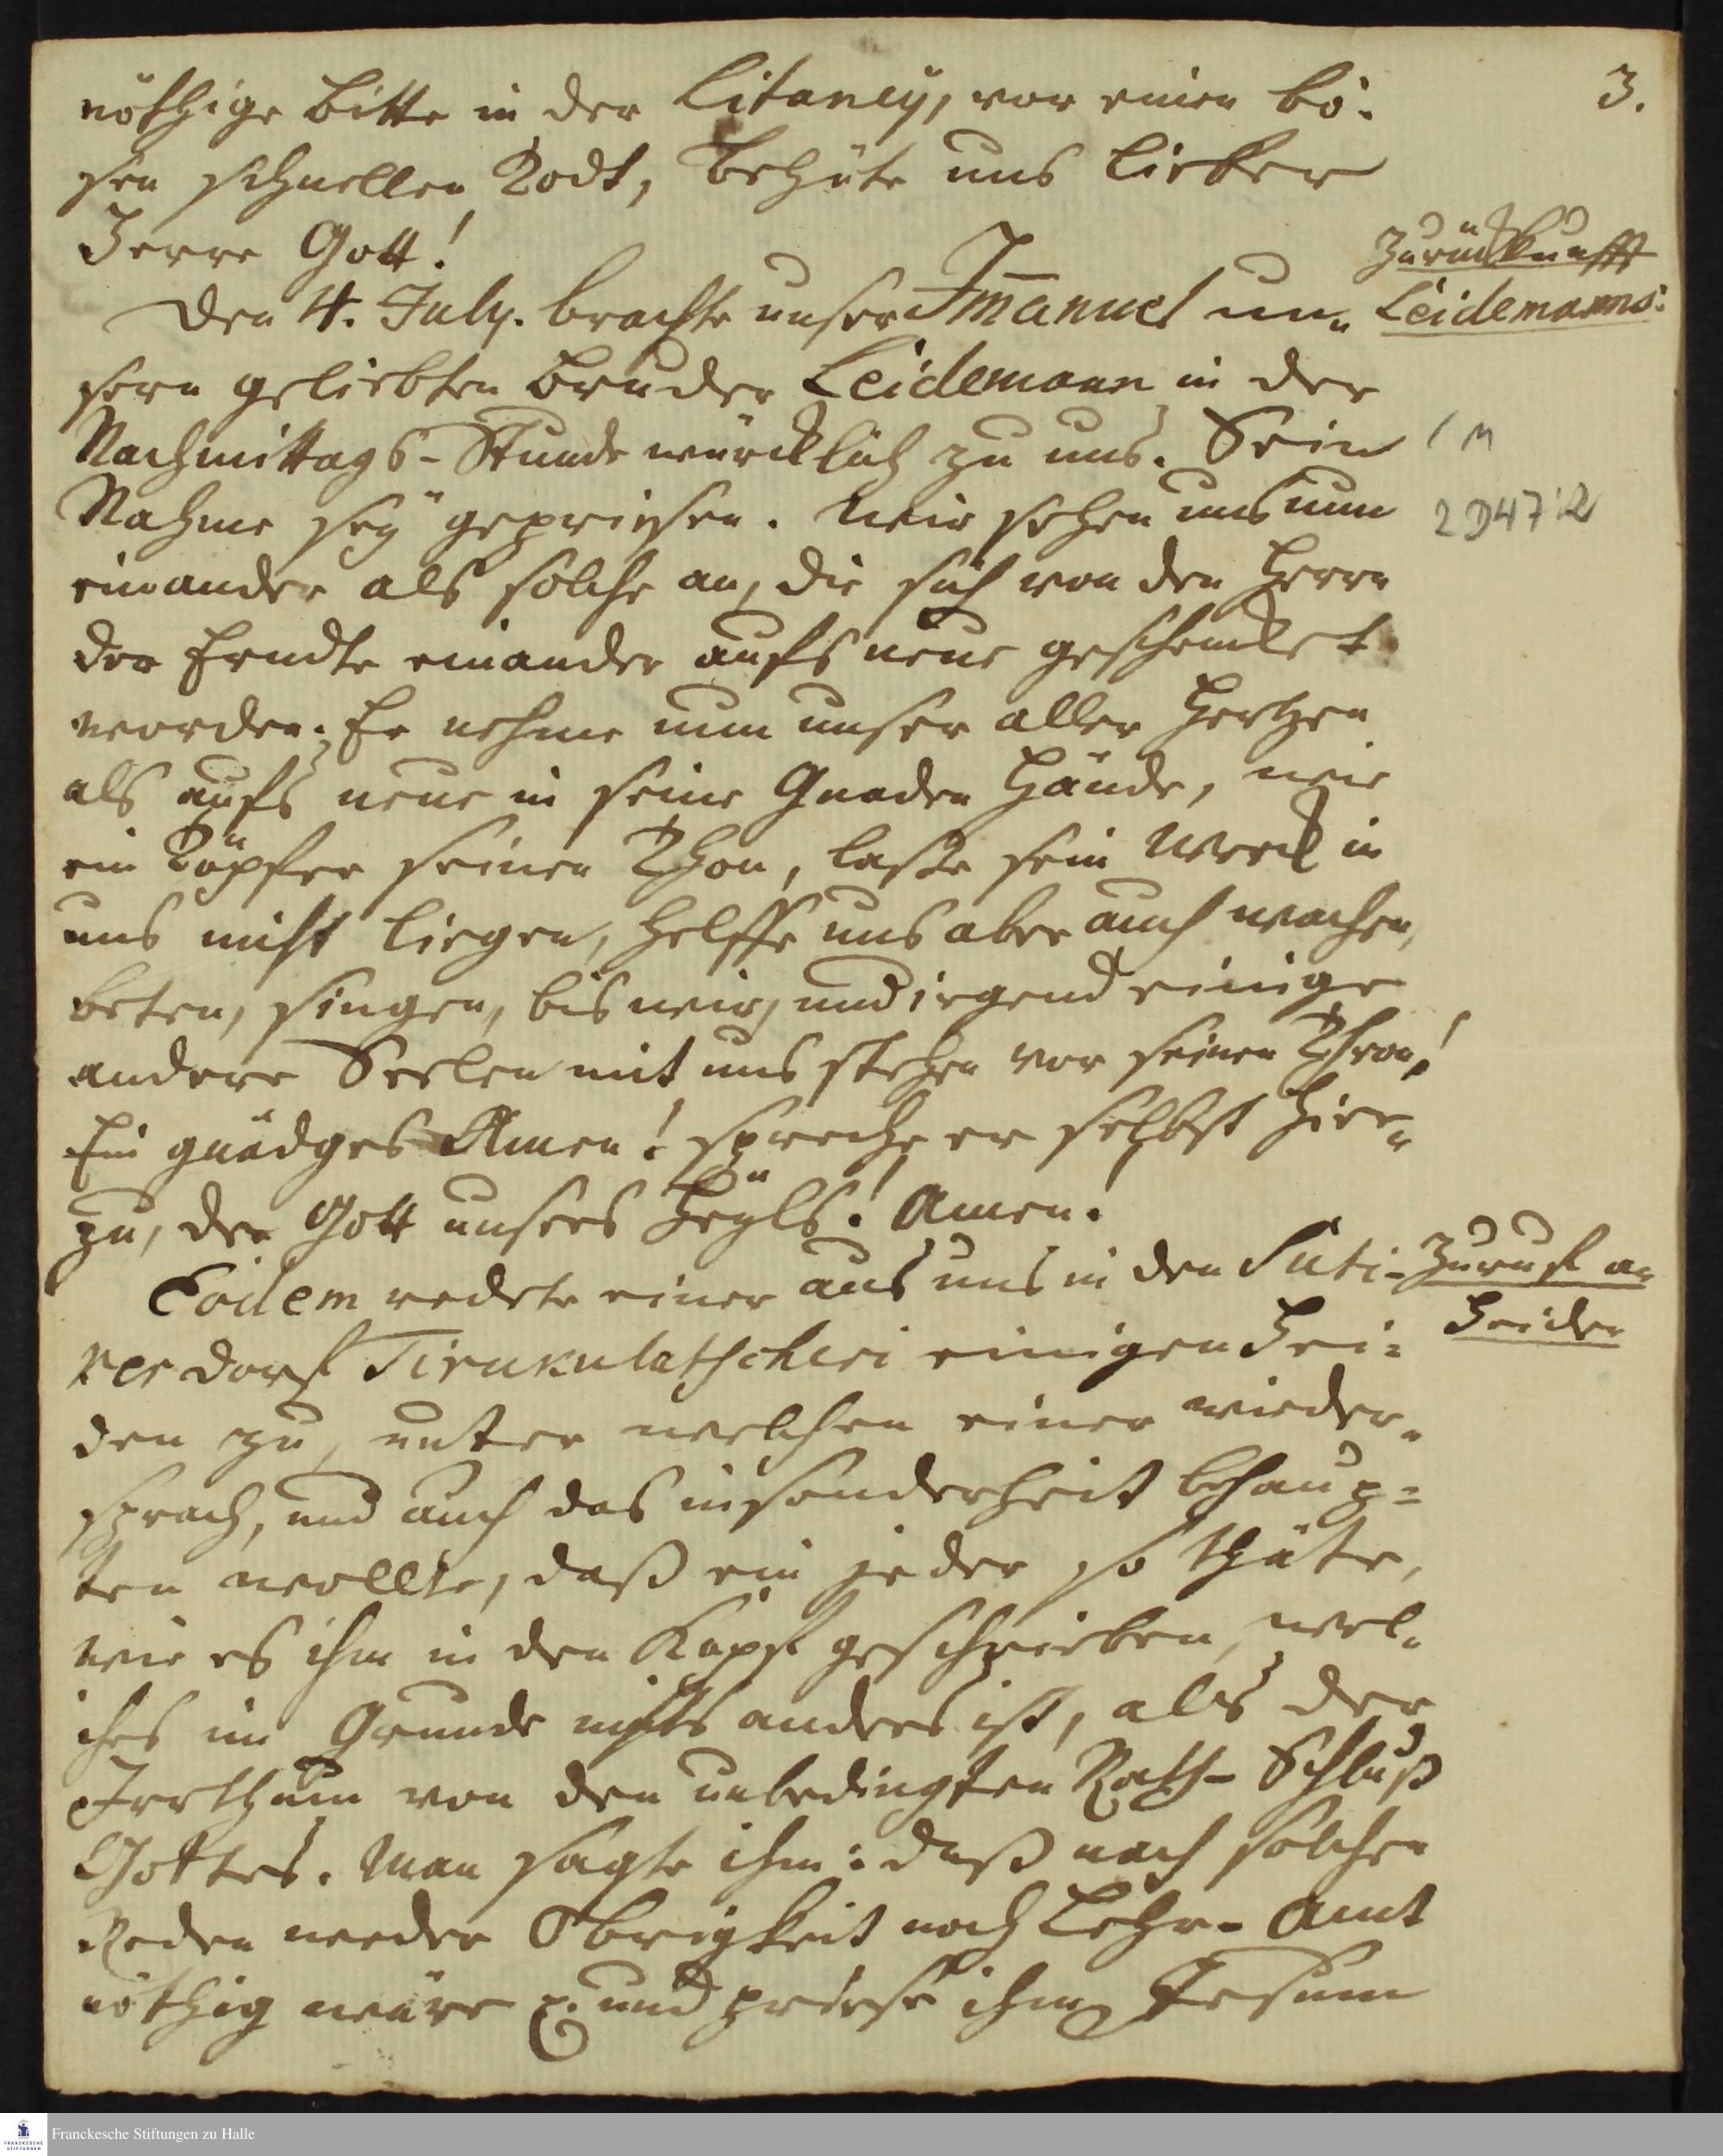 3.
nöthige Bitte in der Litaney, vor einen bö-
sen schnellen Todt, behüte uns lieber
Herre Gott!
Zurückkunfft
Leidemanns:
Den 4. July. brachte unser Immanuel un-
sern geliebten Bruder Leidemann in der
Nachmittags-Stunde würcklich zu uns. Sein
Nahme sey gepriesen. Wir sehen uns nun
/ M
2 D 47:2
einander als solche an, die sich von den Herrn
der Erndte einander aufs neue geschencket
worden. Er nehme nun unser aller Hertzen
als aufs neue in seine Gnaden Hände, wie
ein Töpfer seinen Thon, laße sein Werck in
uns nicht liegen, helffe uns aber auch wachen,
beten, singen, bis wir, und irgend einige
andere Seelen mit uns stehen vor seinen Thron!
Ein gnädges Amen! spreche er selbst hier-
zu, der Gott unsers Heyls! Amen.
Eodem redete einer aus uns in den Siti-
Zuruf an
Heiden
rer dorf Tirukulatscheri einigen Hei-
den zu, unter welchen einer wieder-
sprach, und auch das insonderheit behaup-
ten wollte, daß ein jeder so thäte,
wie es ihm in den Kopf geschrieben, wel-
ches im Grunde nichts anders ist, als der
Irrthum von den unbedingten Rath-Schluß
Gottes. Man sagte ihm: daß nach solchen
Reden weder Obrigkeit noch Lehr-Amt
nöthig wäre p. und priese ihm Jesum
Franckesche Stiftungen zu Halle